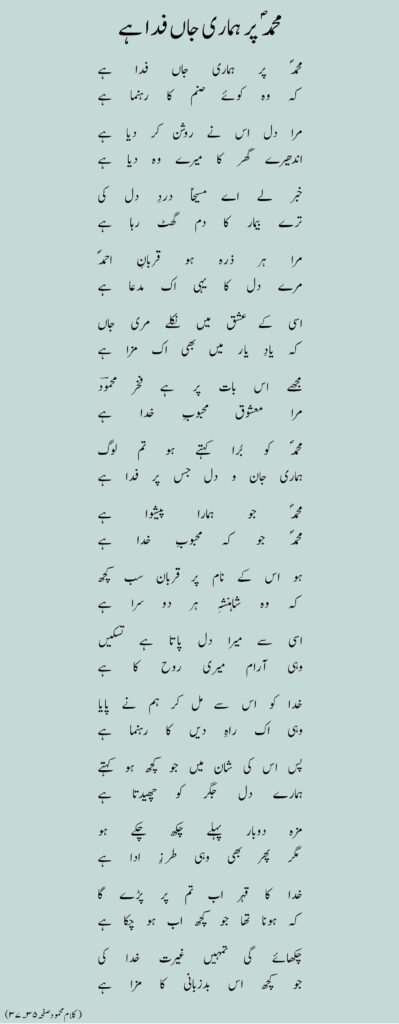 محمدؐ پر ہماری جاں فدا ہے
محمدؐ پر ہماری جاں فدا ہے
کہ وہ کوئے صنم کا رہنما ہے
مرا دل اس نے روشن کر دیا ہے
اندھیرے گھر کا میرے وہ دیا ہے
خبر لے اے مسیحاؑ دردِ دل کی
ترے بیمار کا دم گھٹ رہا ہے
مرا ہر ذرہ ہو قربانِ احمدؐ
مرے دل کا یہی اک مدعا ہے
اسی کے عشق میں نکلے مری جاں
کہ یادِ یار میں بھی اک مزا ہے
مجھے اس بات پر ہے فخر محمودؔ
مرا معشوق محبوبِ خدا ہے
محمدؐ کو بُرا کہتے ہو تم لوگ
ہماری جان و دل جس پر فدا ہے
محمدؐ جو ہمارا پیشوا ہے
محمدؐ جو کہ محبوبِ خدا ہے
ہو اس کے نام پر قربان سب کچھ
کہ وہ شاہنشہِ ہر دو سرا ہے
اسی سے میرا دل پاتا ہے تسکیں
وہی آرام میری روح کا ہے
خدا کو اس سے مل کر ہم نے پایا
وہی اک راہِ دیں کا رہنما ہے
پس اس کی شان میں جو کچھ ہو کہتے
ہمارے دل جگر کو چھیدتا ہے
مزہ دوبار پہلے چکھ چکے ہو
مگر پھر بھی وہی طرزِ ادا ہے
خدا کا قہر اب تم پر پڑے گا
کہ ہونا تھا جو کچھ اب ہو چکا ہے
چکھائے گی تمہیں غیرت خدا کی
جو کچھ اس بدزبانی کا مزا ہے
(کلام محمود صفحہ ۳۵۔۳۷)